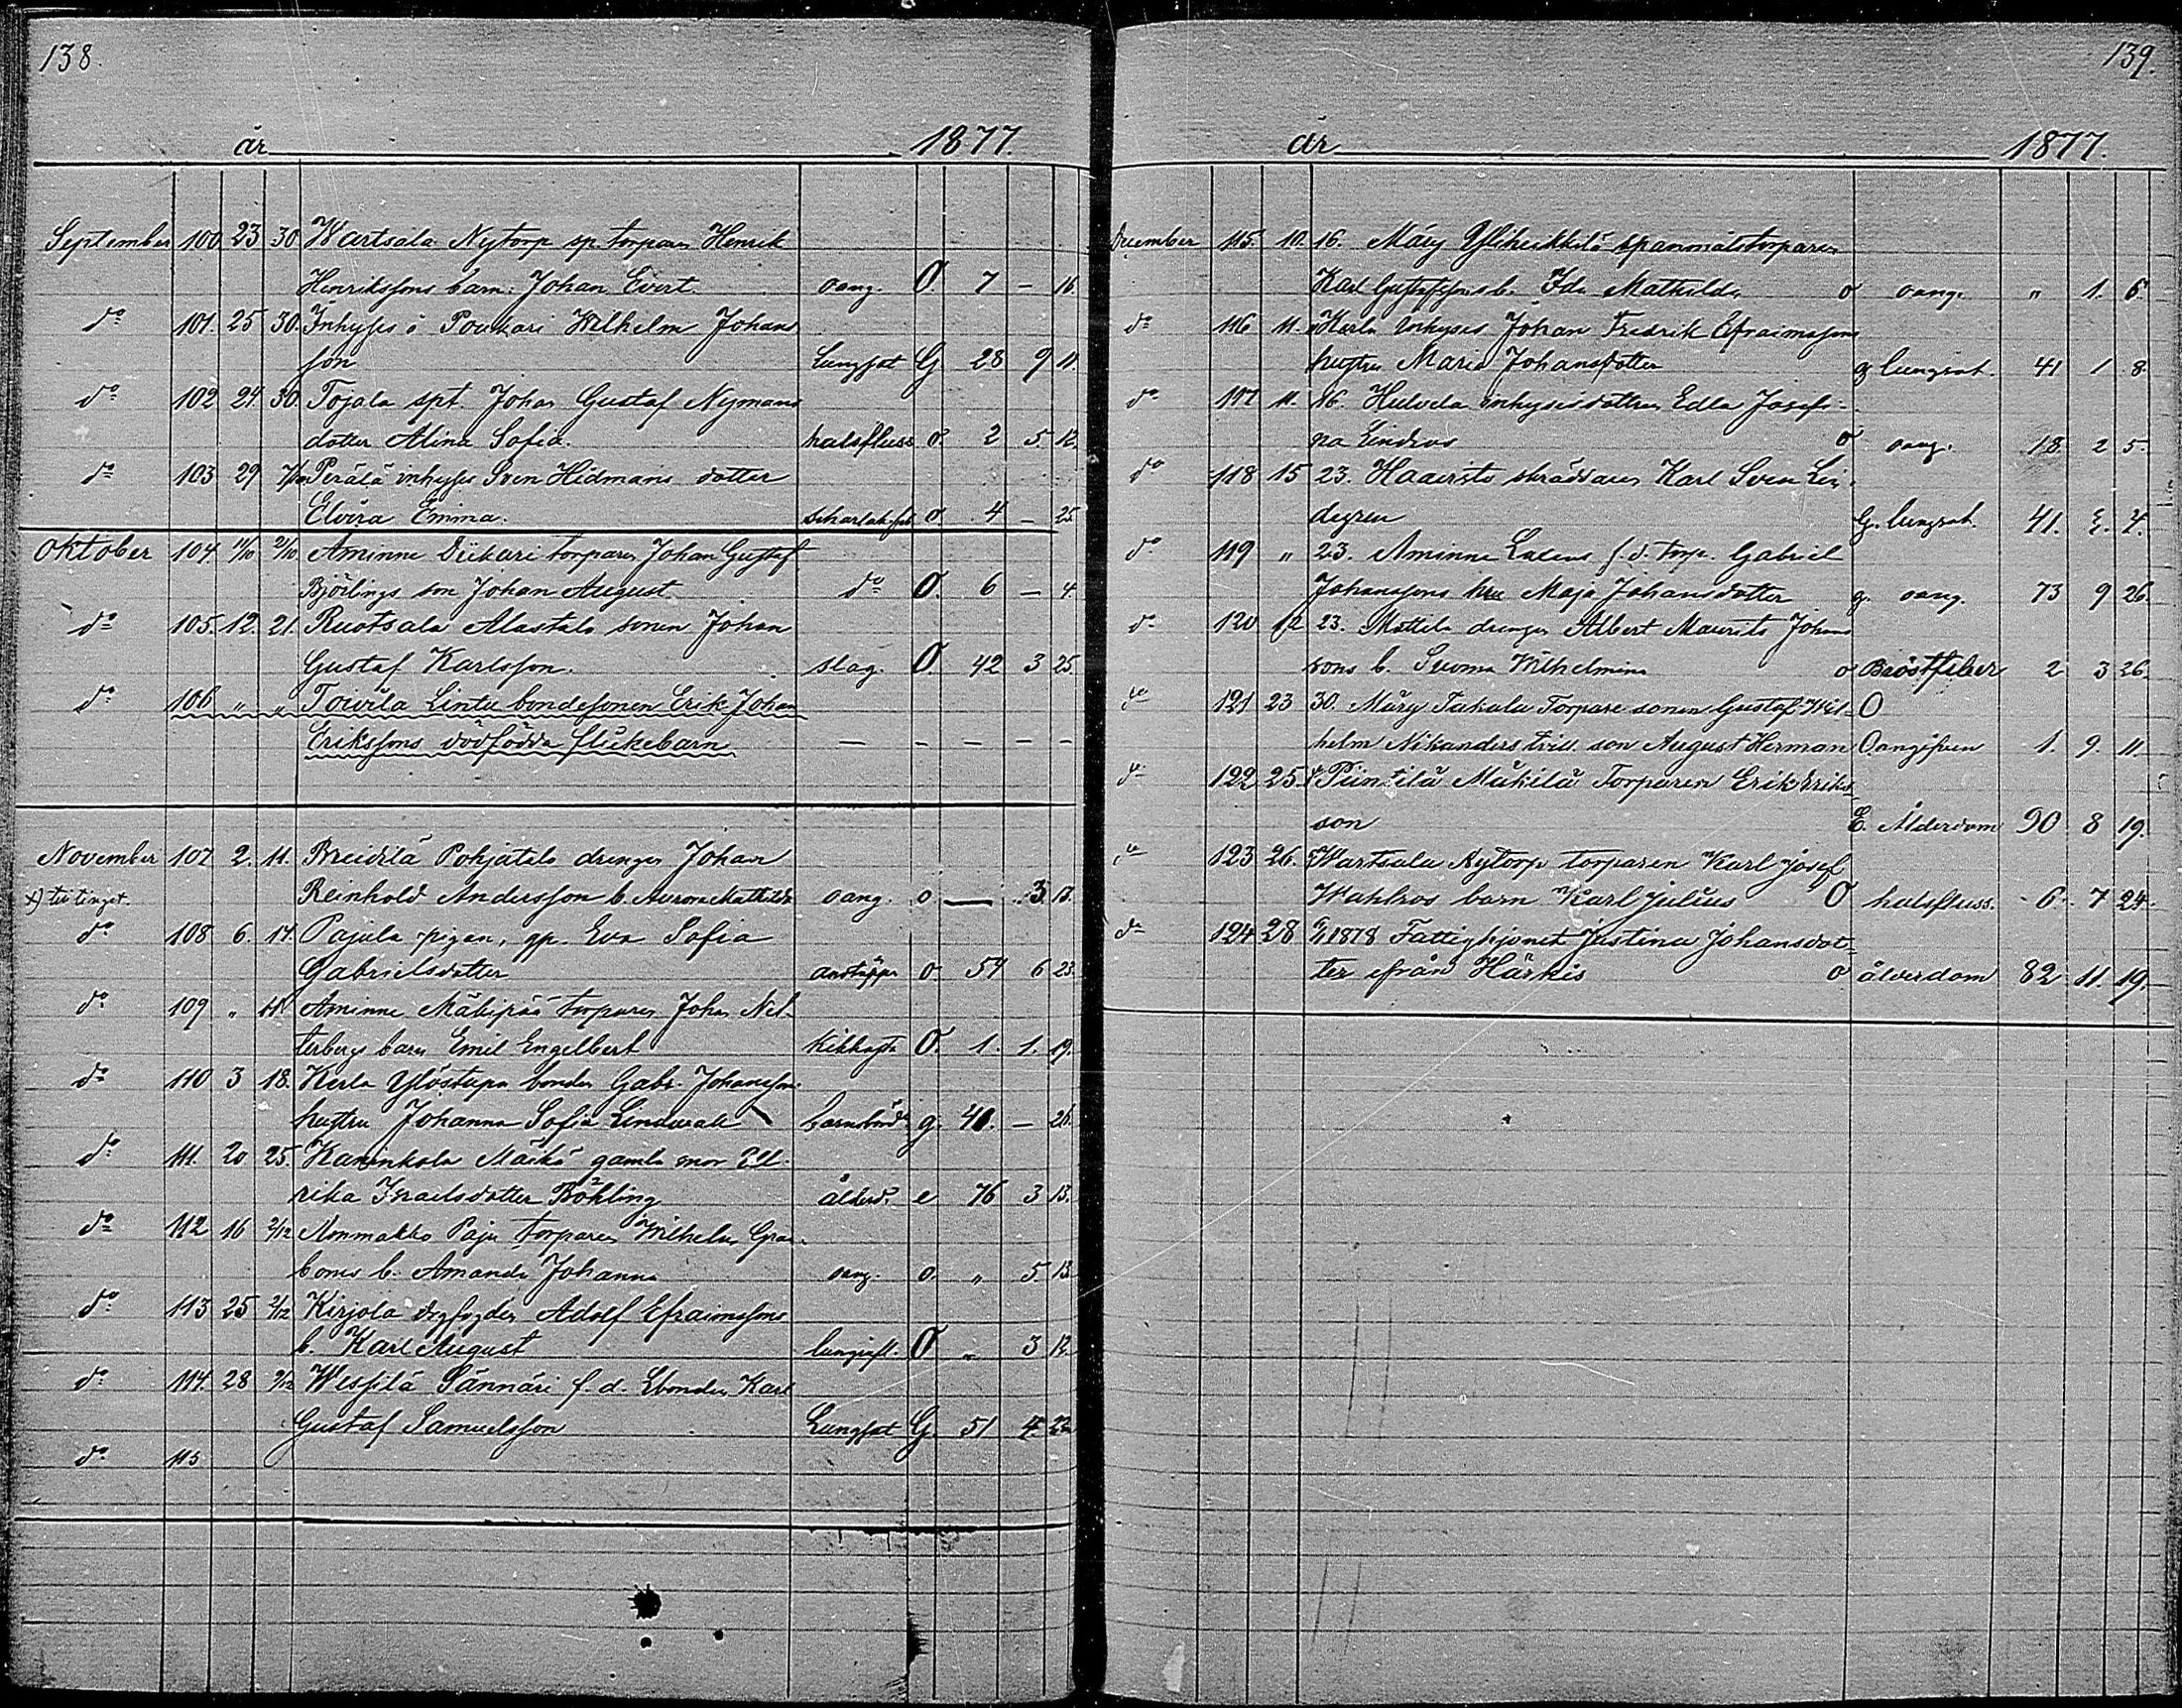 138.
år 1877.
September 100. 23 30 Wartsala Nytorp sp. torparen Henrik
Henrikssons barn: Johan Evert. oang. O. 7 – 16.
do 101. 25 30. Inhyses å Poukari Wilhelm Johans
son Lungsot G. 28 9 11.
do 102 24. 30. Tojala spt. Johan Gustaf Nymans
dotter Alina Sofia. halsfluss o. 2 5. 12.
do 103 29 7/10 Perälä inhyses Sven Hidmans dotter
Elvira Emma. scharlak.feb o. 4 – 25.
Oktober 104. 11/10 21/10. Aminne torparen Johan Gustaf
Björlings son Johan August do O. 6 – 4
do 105. 12. 21. Ruotsala Alastalo sonen Johan
Gustaf Karlsson. slag. O. 42 3 25.
do 106 „ „ Toivila Lintu bondesonen Erik Johan
Erikssons dödfödda flickebarn – – – – –
November 107 2. 11. Breidilä Pohjatalo drengen Johan
x) till tinget. Reinhold Andersson b. Aurora Mathilda oang. o — 3. 18.
do 108 6. 14. Pajula pigan, gp. Eva Sofia
Gabrielsdotter andtäppa o. 54 6 23
do 109 „ 11 Aminne Mäkipää torparen Johan Nel-
terbergs barn Emil Engelbert Kikhosta O. 1. 1. 19.
do 110 3 18. Kerla Ylöstupa bonden Gabr. Johanssons
hustru Johanna Sofia Lindwall barnsbörd g. 41. – 26.
do 111. 20 25. Kaninkola Mäkö gamla mor Ul-
rika Israilsdotter Böhling ålderd. e 76 3 13.
do 112 16 2/12 Ammakko Paju torparen Wilhelm Gran-
boms b. Amanda Johanna oang. o. „ 5. 13.
do 113 25 2/12 Kirjola Adolf Efraimssons
b. Karl August lunginfl. O „ 3 12.
do 114. 28 9/12 Wessilä Sännäri f.d. bonden Karl
Gustaf Samuelsson Lungsot G. 51 4 22
do 115
139.
år 1877.
December 115. 10. 16. Märy Yliheikkilä spanmålstorparen
Karl Gustafssons b. Ida Mathilda o oang. „ 1. 6.
do 116 11. „ Kärla inhyses Johan Fredrik Efraimssons
hustru Maria Johansdotter g lungsot. 41 1 8.
do 117 11. 16. Hulvela inhysesdottren Edla Josefi-
na Lindros o oang. 18. 2 5.
do 118 15 23. Haaristo skräddaren Karl Sven Lin-
degren G. lungsot. 41. 2. 4.
do 119 „ 23. Aminne f.d. torp. Gabriel
Johanssons hru Maja Johansdotter g. oang. 73 9 26.
do 120 12 23. Mattila drengen Albert Maurits Johans
sons b. Suoma Wilhelmina o Bröstfeber 2 3 26.
do 121 23 30. Märy Takala Torpare sonen Gustaf Wil- O
helm Nikanders tvill. son August Herman Oangifven 1. 9. 11.
do 122 25. Piintilä Mäkilä Torparen Erik Eriks-
son E. Ålderdom 90 8 19.
do 123 26. Wartsala Nytorp torparen Karl Josef
Wahlros barn Karl Julius O halsfluss. 6. 7 24.
do 124 28 1878 Fattighjonet Justina Johansdot-
ter ifrån Härkis o. ålderdom 82 11. 19.